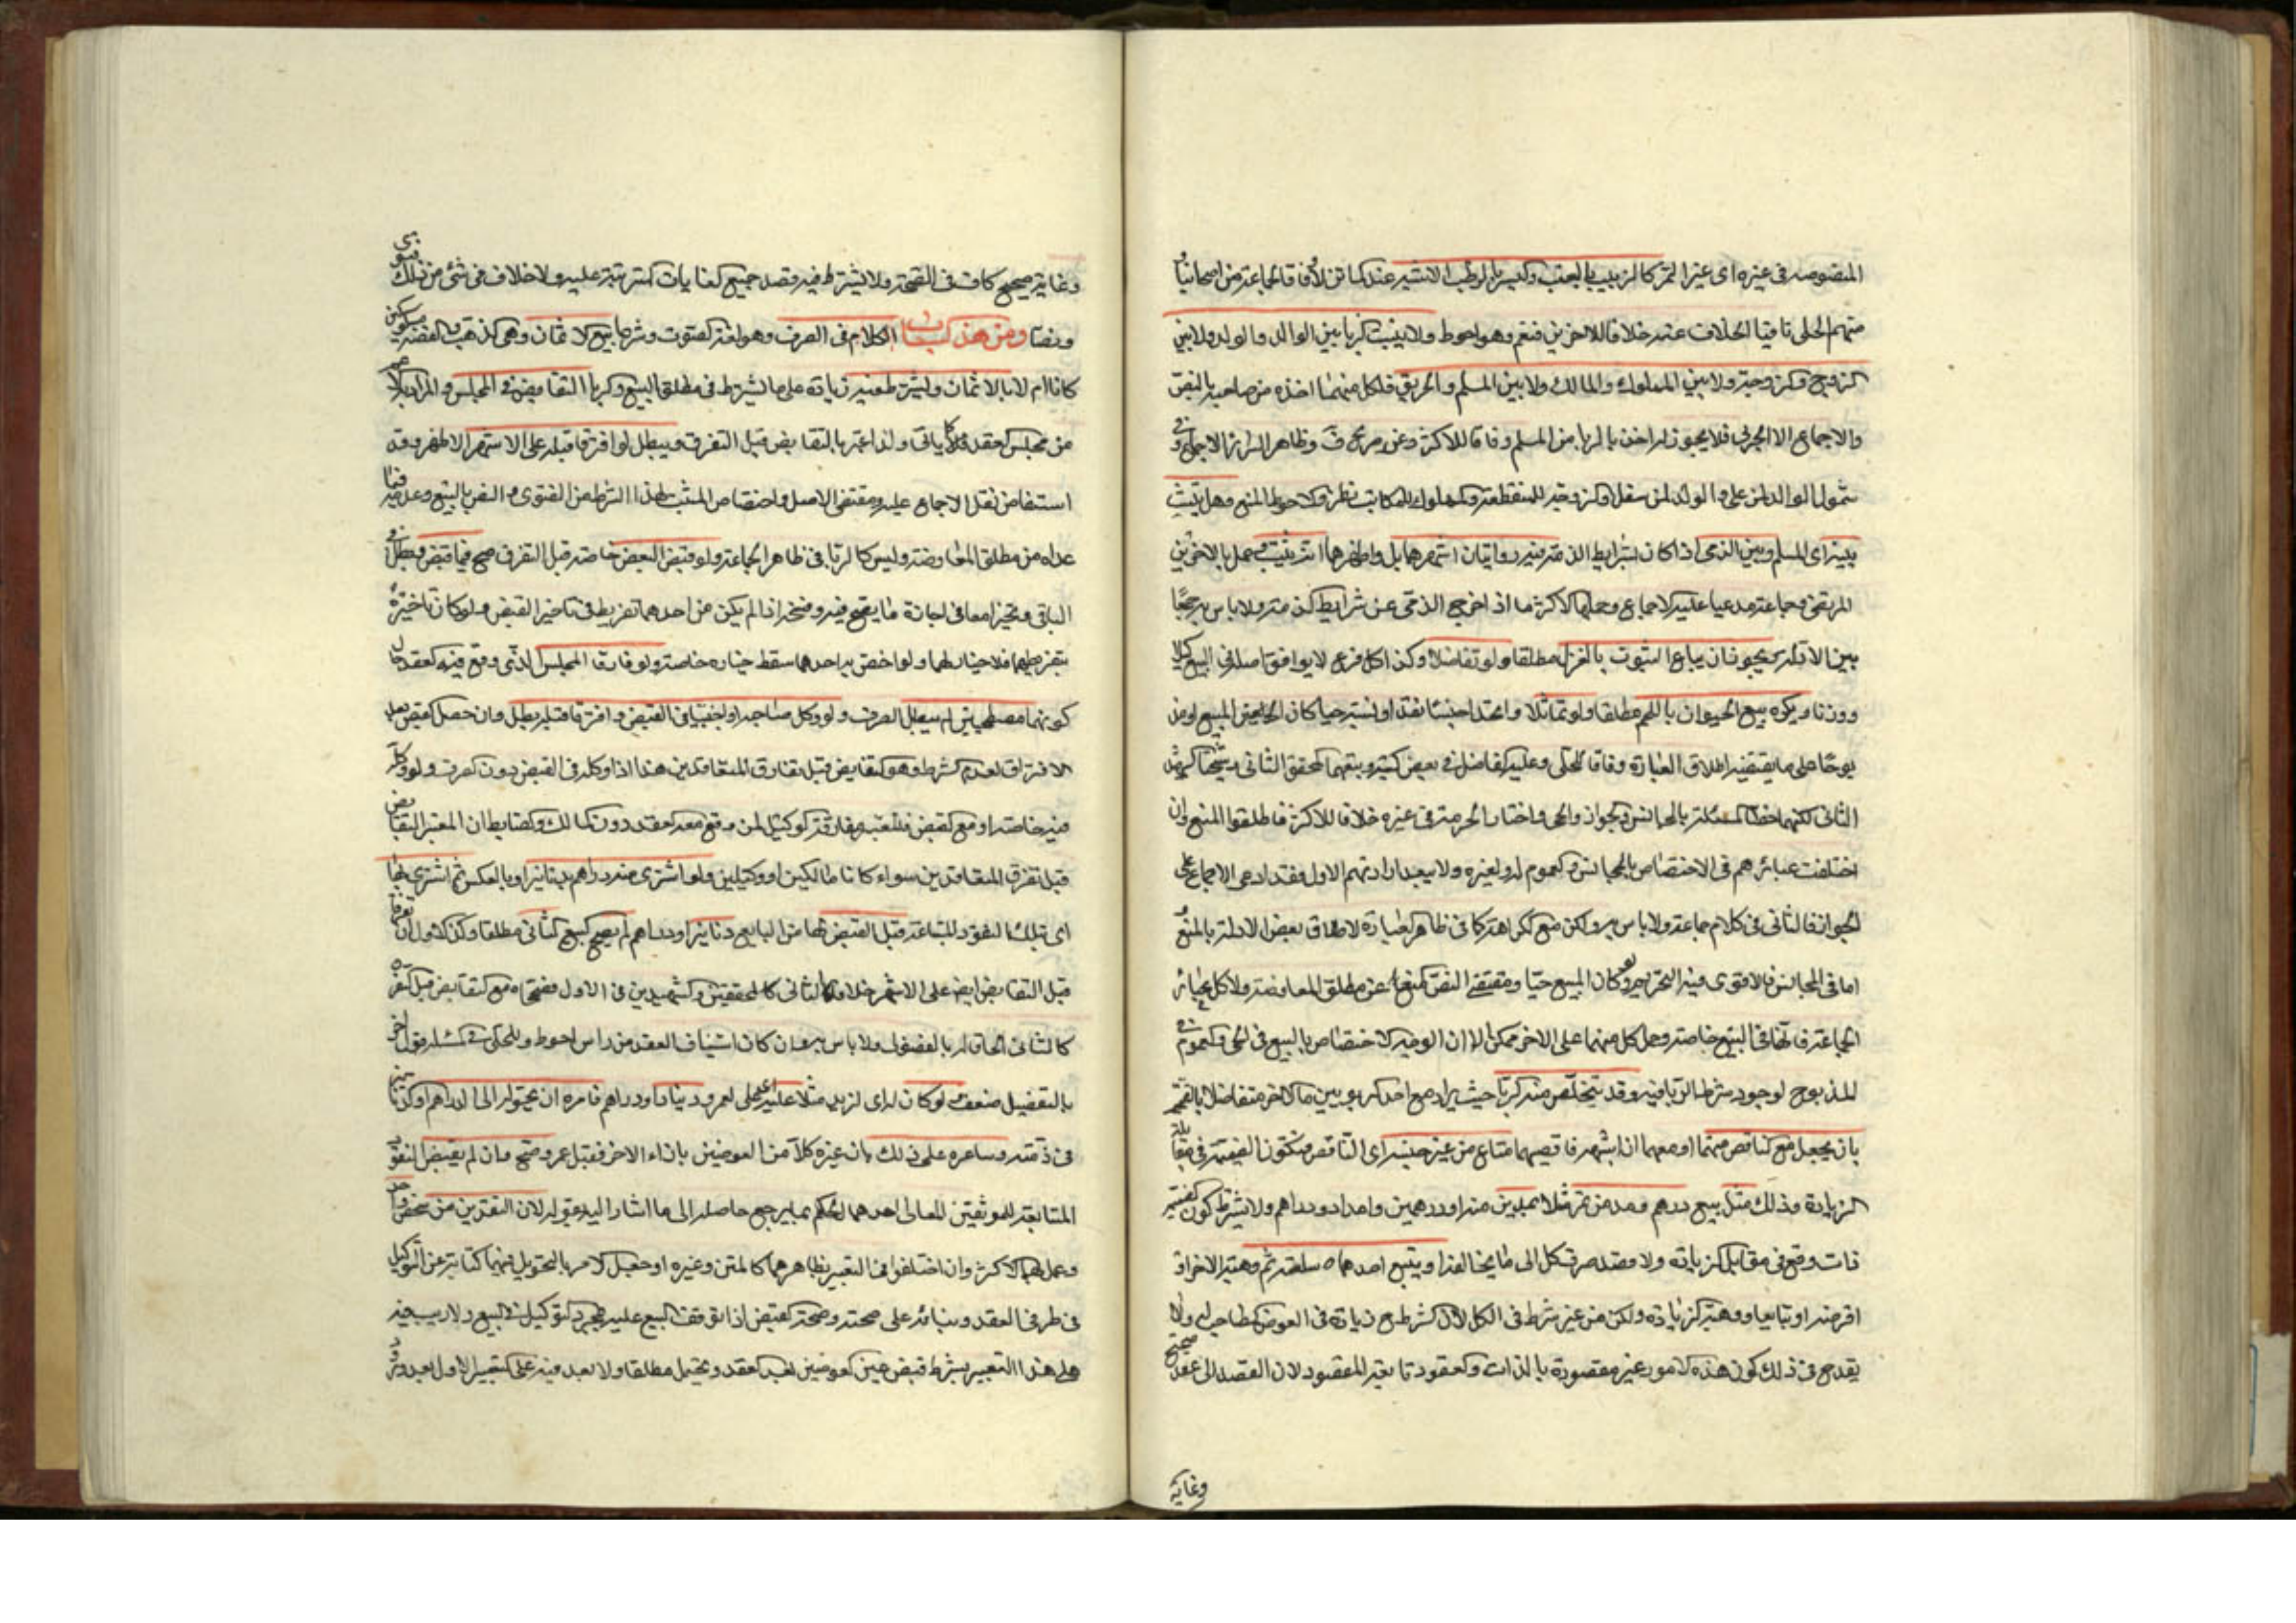 المنصوصه في غيره اى غير التمر كالزبيب بالعنب والبسر بالرطب الاشهر عند الماتن لا وفاقا لجماعة من اصحابنا
منهم الحلي نافيا الخلاف عنه خلافا للاخرين فنعم وهو احوط ولا يثبت الربا بين الوالد والولد ولا بين
الزوج والزوجة ولا بين المملوك والمالك ولا بين المسلم والحربي فلكل منهما اخذه من صاحبه بالنص
والاجماع الا الحربي فلا يجوز له اخذ الربا من المسلم وفاقا للاكثر وظاهر السرائر الاجماع وفي
شمول الوالد لمن على والولد لمن سفل والزوجة للمنقطعة والمملوك للمكاتب نظر والاحوط المنع وهل يثبت
بينه اى المسلم وبين الذمى اذا كان بشرايط الذمة فيه روايتان اشهرهما بل واظهرهما انه يثبت وعمل بالاخرى
المرتضى وجماعة مدعيا عليه الاجماع وحملها الاكثر ما اذا خرج الذمى عن شرايط الذمة ولا باس به جمعا
بين الادلة ويجوز ان يباع الثوب بالغزل مطلقا ولو تفاضلا وكذا كل فرع لا يوافق اصله في البيع كيلا
ووزنا ويكره بيع الحيوان باللحم مطلقا ولو تماثلا واتحدا جنسا نقدا او نسية حيا كان الحيوان المبيع او مذ
بوحا على ما يقتضيه اطلاق العبارة وفاقا للحلي وعليه الفاضل في بعض كتبه وتبعهما المحقق الثاني وشيخنا الشهيد
الثاني لكنهما خصا المسئلة بالمجانس والجواز والحي واختار الحرمة في غيره خلافا للاكثر فاطلقوا المنع وان
اختلفت عبائرهم في الاختصاص بالمجانس والعموم له ولغيره ولا يبعد ارادتهم الاول فقد ادعى الاجماع على
الجواز في الثاني في كلام جماعة ولا باس به ولكن مع الكراهة كما في ظاهر العبارة لاطلاق بعض الادلة بالمنع
اما في المجانس فالاقوى فيه التحريم ولو كان المبيع حيا ومقتضى النص المنع عن مطلق المعاوضة ولا كل عبائر
الجماعة فانها في البيع خاصة وحمل كل منهما على الاخر ممكن الا ان الوجه الاختصاص بالبيع في الحي والعموم في
المذبوح لوجود شرط الربا فيه وقد يتخلص من الربا حيث يراد مع احد الربويين مالاخر متفاضلا بالقيمة
بان يجعل مع الناقص منهما او معهما ان اشتبه ناقصهما متاع من غير جنسه اى الناقص فتكون القيمة في مقابلة
الزيادة وذلك مثل بيع درهم ومد من تمر مثلا بمدين منه او درهمين وامداد ودراهم ولا يشترط كون القيمة
ذات وقع في مقابل الزيادة ولا قصد صرف كل الى ما يخالفه او يبيع احدهما سلعته ثم وهبه الاخر او
اقرضه او تبايعا ووهبه الزيادة ولكن من غير شرط في الكل لان الشرط ح زيادة في العوض المصاحب له ولا
يقدح في ذلك كون هذه الامور غير مقصودة بالذات والعقود تابعة للمقصود لان القصد الى عقد صحيح
وغاية
وغاية صحيح كاف في الصحة ولا يشترط فيه قصد جميع الغايات المترتبة عليه ولا خلاف في شئ من ذلك فتوى
ونصا ومن هذا الباب الكلام في الصرف وهو لغة الصوت وشرعا بيع الاثمان وهى الذهب والفضة مسكوكين
كانا ام لا بالاثمان ويشترط فيه زيادة على ما يشترط في مطلق البيع والربا التقابض في المجلس والمراد به الاعم
من مجلس العقد كما ياتى ولذا اعتبر بالتقابض قبل التفرق ويبطل لو افترقا قبله على الاشهر الاظهر وقد
استفاض نقل الاجماع عليه ومقتضى الاصل واختصاص المثبت لهذا الشرط من الفتوى والنص بالبيع وعدمه فيما
عداه من مطلق المعاوضة وليس كالربا في ظاهر الجماعة ولو قبض البعض خاصة قبل التفرق صح فيما قبض وبطل في
الباقى وتخيرا معا في اجازة ما يصح فيه وفسخه اذا لم يكن من احدهما تفريط في تاخير القبض ولو كان تاخيره
بتفريطهما فلا خيار لهما ولو اختص به احدهما سقط خياره خاصة ولو فارقا المجلس الذى وقع فيه العقد حال
كونهما مصطحبين لم يبطل الصرف ولو وكل صاحبه او اجنبيا في القبض وافترقا قبله بطل وان حصل القبض بعد
الافتراق لعدم الشرط وهو التقابض قبل تفارق المتعاقدين هذا اذا وكله في القبض دون الصرف ولو وكله
فيه خاصة او مع القبض فالمعتبر مفارقة الوكيل لمن وقع معه العقد دون المالك والضابط ان المعتبر التقابض
قبل تفرق المتعاقدين سواء كانا مالكين او وكيلين ولو اشترى منه دراهم بدنانير او بالعكس ثم اشترى بها
اى بتلك النقود المبتاعة قبل القبض لها من البايع دنانير او دراهم لم يصح البيع الثانى مطلقا وكذا الاول ان تفرقا
قبل التقابض ايضا على الاشهر خلافا للثانى كالمحققين والشهيدين في الاول فصححاه مع التقابض قبل التفرق
كالثانى الحاقا له بالفضولى ولا باس به وان كان استيناف العقد من راس احوط وللحلى في المسئلة قول اخر
بالتفصيل ضعف لو كان له اى لزيد مثلا عليه اى على لعمرو دينار او دراهم فامره ان يحولها الى الدراهم او الدنانير
في ذمته وساعره على ذلك بان غيره كلا من العوضين بازاء الاخر فقبل عرو صح وان لم يقبض النقود
المتابعة للموثقين المعالى احدهما الحكم بما يرجع حاصله الى ما اشار اليه بقوله لان النقدين من شخص واحد
وعمل بهما الاكثر وان اختلفوا في التعبير بظاهرهما كالمتن وغيره او جعل الامر بالتحويل فيهما كناية عن التوكيل
في طرفى العقد وبنائه على صحته وصحة القبض اذا توقف البيع عليه بمجرد التوكيل في البيع ولا ريب فيه
على هذا التعبير بشرط قبض عين العوضين بعد العقد ويحتمل مطلقا ولا بعد فيه على التعبير الاول بعد ورود